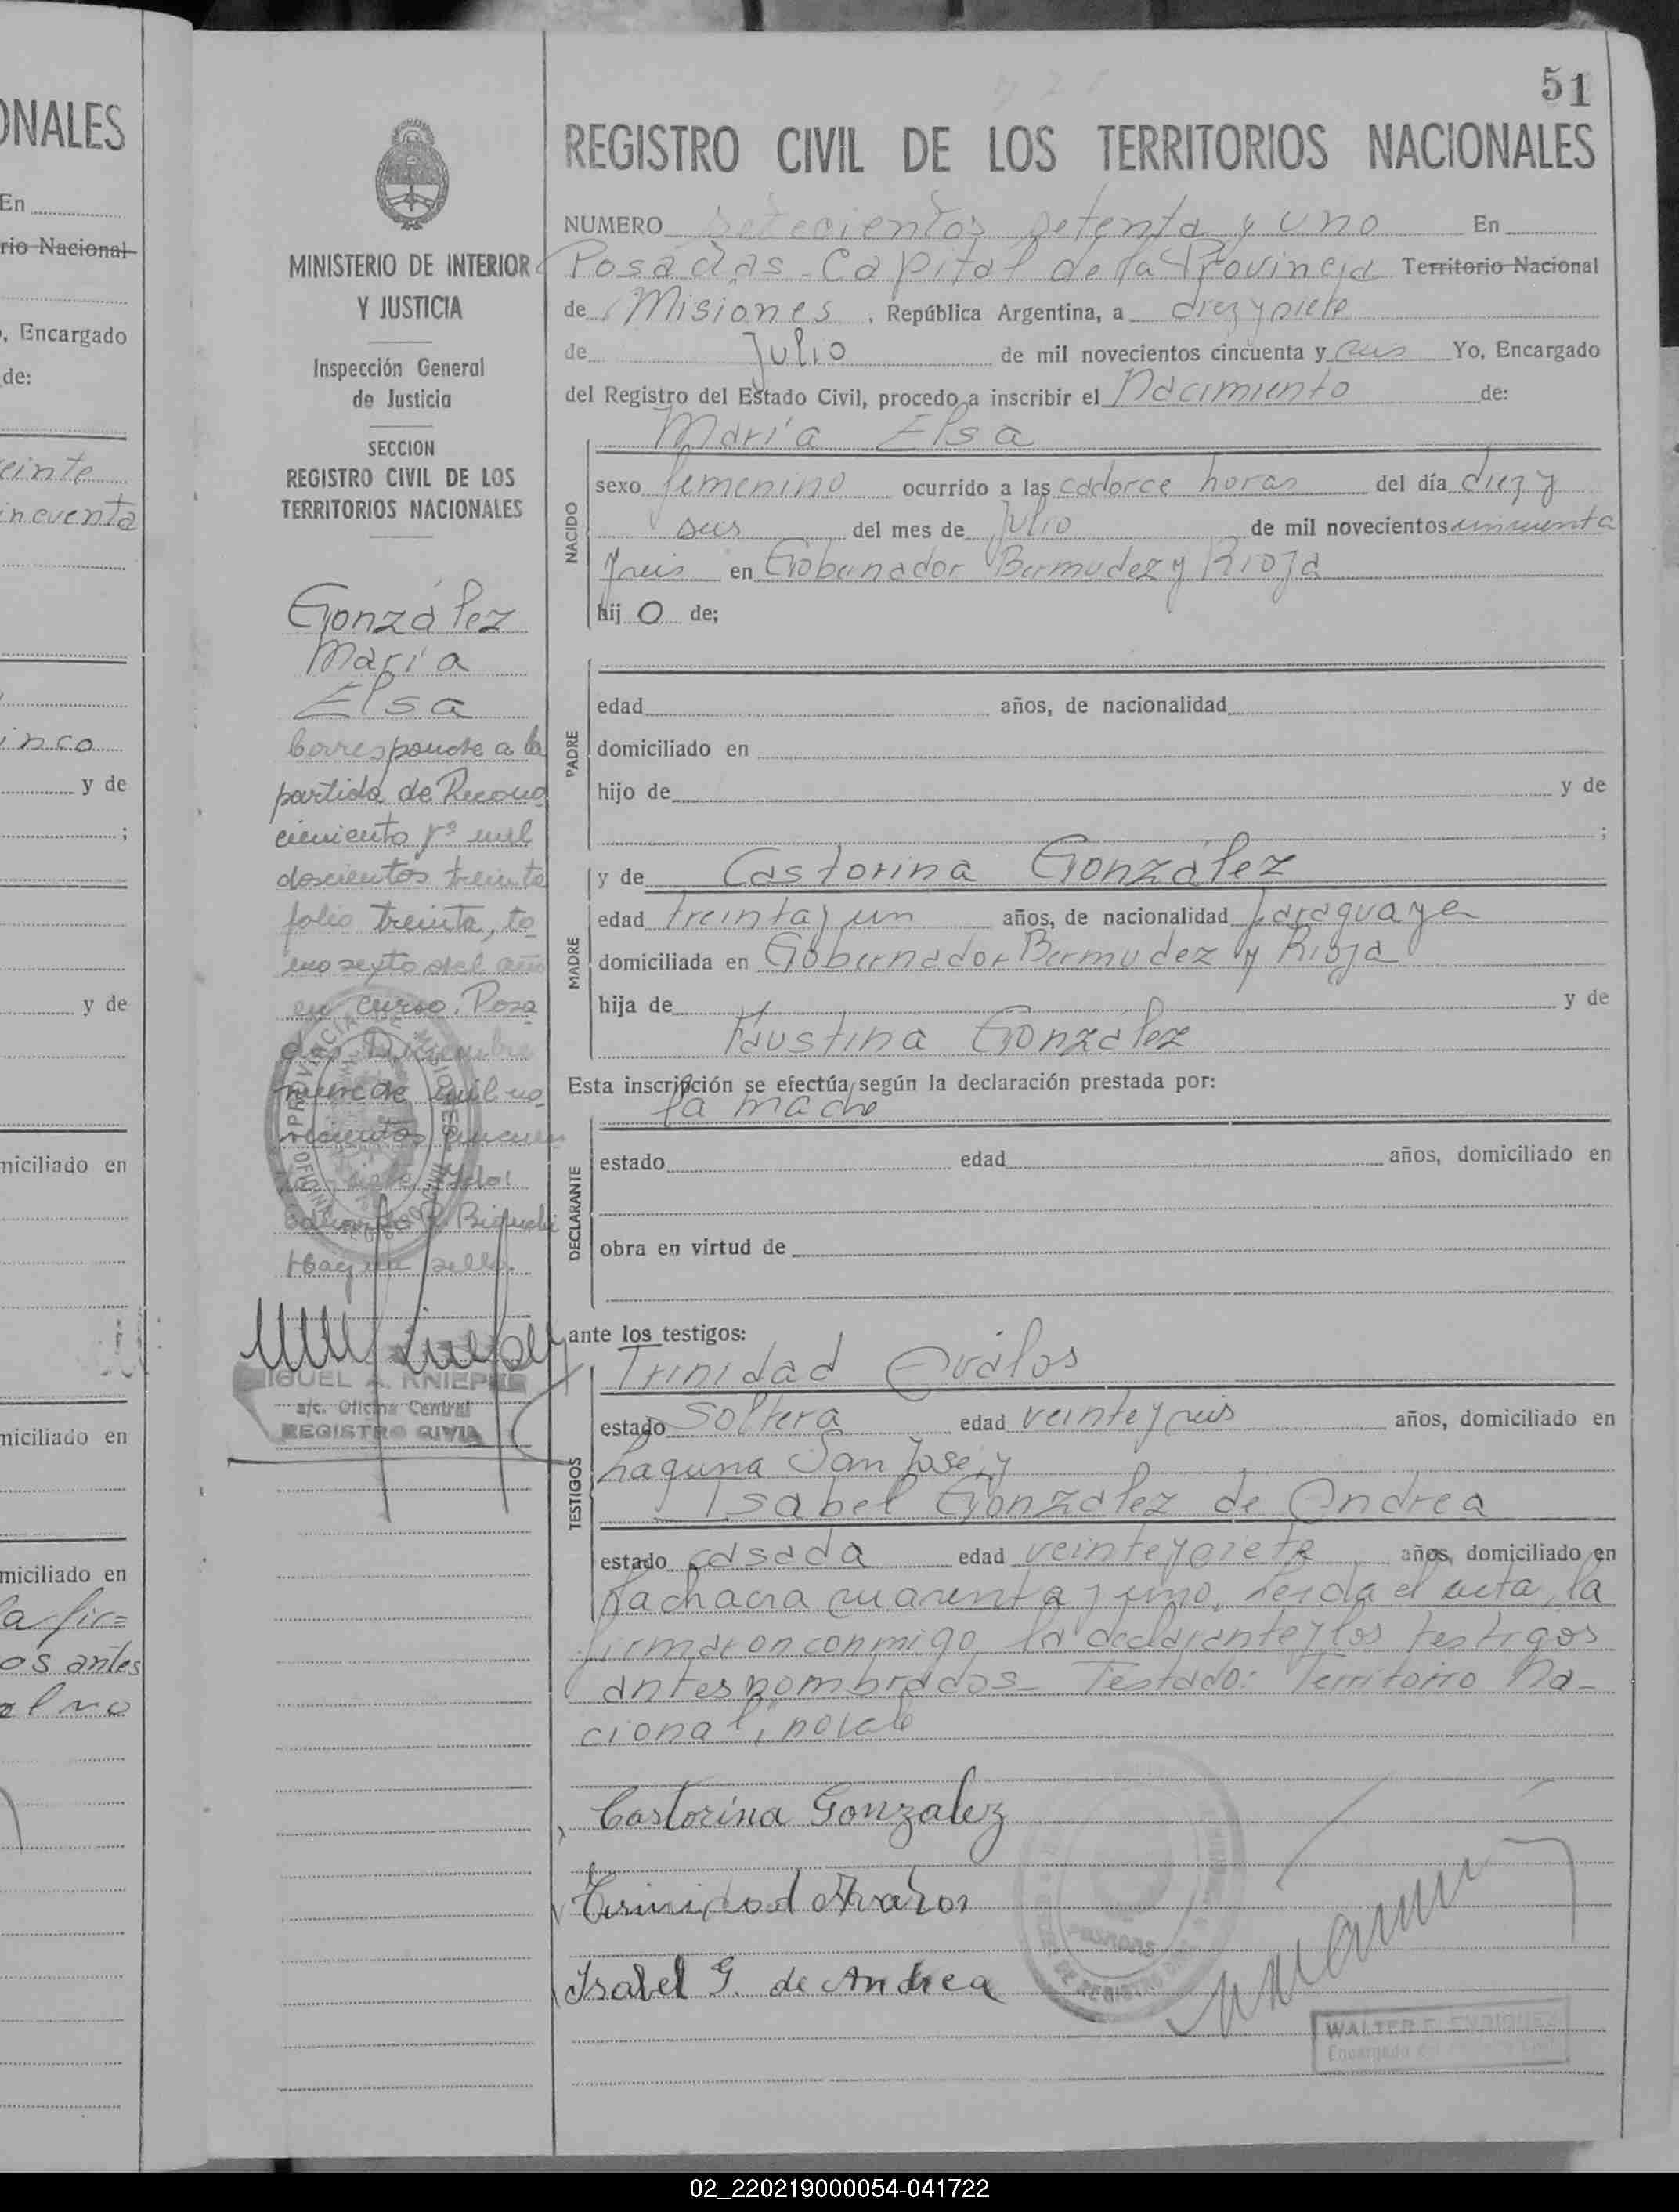 ONALES
En
rio Nacional
, Encargado
de:
einte
incuenta
inco
y de
;
y de
miciliado en
miciliado en
miciliado en
la fir=
os antes
al no
MINISTERIO DE INTERIOR
Y JUSTICIA
Inspección General
de Justicia
SECCION
REGISTRO CIVIL DE LOS
TERRITORIOS NACIONALES
González
María
Elsa
Corresponde a la
partida de Recono
cimiento Nº mil
doscientos treinta
folio treinta, to
mo sexto del año
en curso. Posa
das Diciembre
nueve de mil no
vecientos cincuen
siete. Fdo:
Eduardo R.
Hay un sello.
MIGUEL A. KNIEPER
a/c. Oficina Central
REGISTRO CIVIL
51
REGISTRO CIVIL DE LOS TERRITORIOS NACIONALES
NUMERO setecientos setenta y uno En
Posadas-Capital de la Provincia Territorio Nacional
de Misiones, República Argentina, a diez y siete
de Julio de mil novecientos cincuenta y seis Yo, Encargado
del Registro del Estado Civil, procedo a inscribir el Nacimiento de:
María Elsa
NACIDO
sexo femenino ocurrido a las catorce horas del día diez y
seis del mes de Julio de mil novecientos cincuenta
y seis en Gobernador Bermudez y Rioja
hij o de;
PADRE
edad años, de nacionalidad
domiciliado en
hijo de y de
;
MADRE
y de Castorina González
edad treinta y un años, de nacionalidad paraguaya
domiciliada en Gobernador Bermudez y Rioja
hija de y de
Faustina González
Esta inscripción se efectúa según la declaración prestada por:
la madre
DECLARANTE
estado edad años, domiciliado en
obra en virtud de
ante los testigos:
TESTIGOS
Trinidad Ovalos
estado Soltera edad veinte y seis años, domiciliado en
Laguna San José, y
Isabel González de Andrea
estado casada edad veinte y siete años, domiciliado en
la chacra cuarenta y uno. Leída el acta, la
firmaron conmigo la declarante y los testigos
antes nombrados_ Testado: Territorio Na-
cional; no vale
Castorina Gonzalez
Trinidad
Isabel G. de Andrea
POSADAS
WALTER E. ENRIQUEZ
Encargado del
02_220219000054-041722